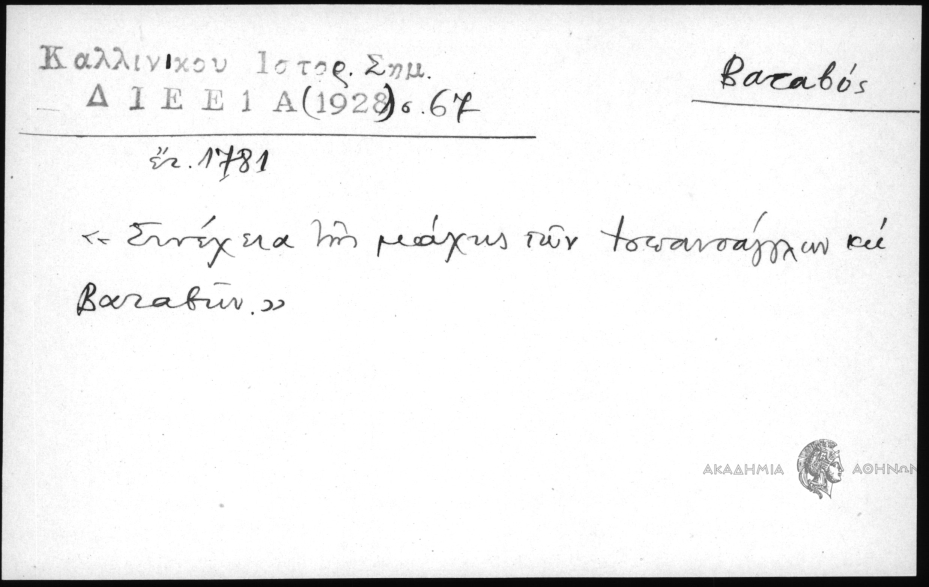 Καλλινίκου Ιστορ. Σημ.
Δ Ι Ε Ε 1 Α (1928) σ. 67
Βαταβός
ἔτ. 1781
« Συνέχεια τῆς μάχης τῶν καὶ
Βαταβῶν. »
ΑΚΑΔΗΜΙΑ ΑΘΗΝΩΝ